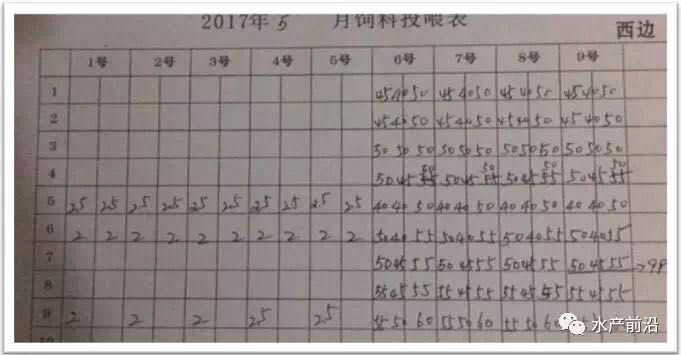 2017年 5 月饲料投喂表
西边
1号 2号 3号 4号 5号 6号 7号 8号 9号
1 45 40 50 45 40 50 45 40 50 45 40 50
2 45 40 50 45 40 50 45 40 50 45 40 50
3 50 50 50 50 50 50 50 50 50 50 50 50
4 50 45 50 45 50 45 50 45
5 25 25 25 25 25 25 25 25 25 25 40 40 50 40 40 50 40 40 50 40 40 50
6 2 2 2 2 2 2 2 2 2 2 50 40 55 50 40 55 50 40 55 50 40 55
7 50 45 55 50 45 55 50 45 55 50 45 55
8 55 45 55 55 45 55 55 45 55 55 45 55
9 2 2 2 25 25 55 50 60 55 50 60 55 50 60
水产前沿